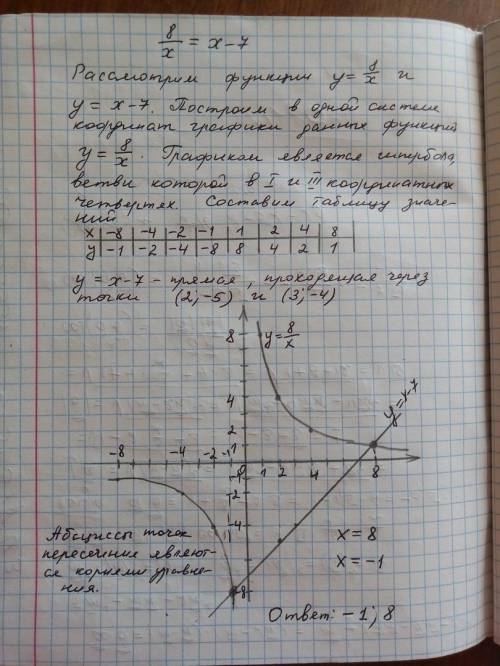 8/x = x-7
Рассмотрим функции y = 8/x и
y = x-7. Построим в одной системе
координат графики данных функций
y = 8/x. Графиком является гипербола,
ветви которой в I и III координатных
четвертях. Составим таблицу значе-
ний
x | -8 | -4 | -2 | -1 | 1 | 2 | 4 | 8
y | -1 | -2 | -4 | -8 | 8 | 4 | 2 | 1
y = x-7 - прямая, проходящая через
точки (2; -5) и (3; -4)
8
y = 8/x
4
2
1
y = x-7
-8 -4 -2 -1 0 1 2 4 8
-1
-2
-4
-8
Абсциссы точек
пересечения являют-
ся корнями уравне-
ния.
x = 8
x = -1
Ответ: -1; 8